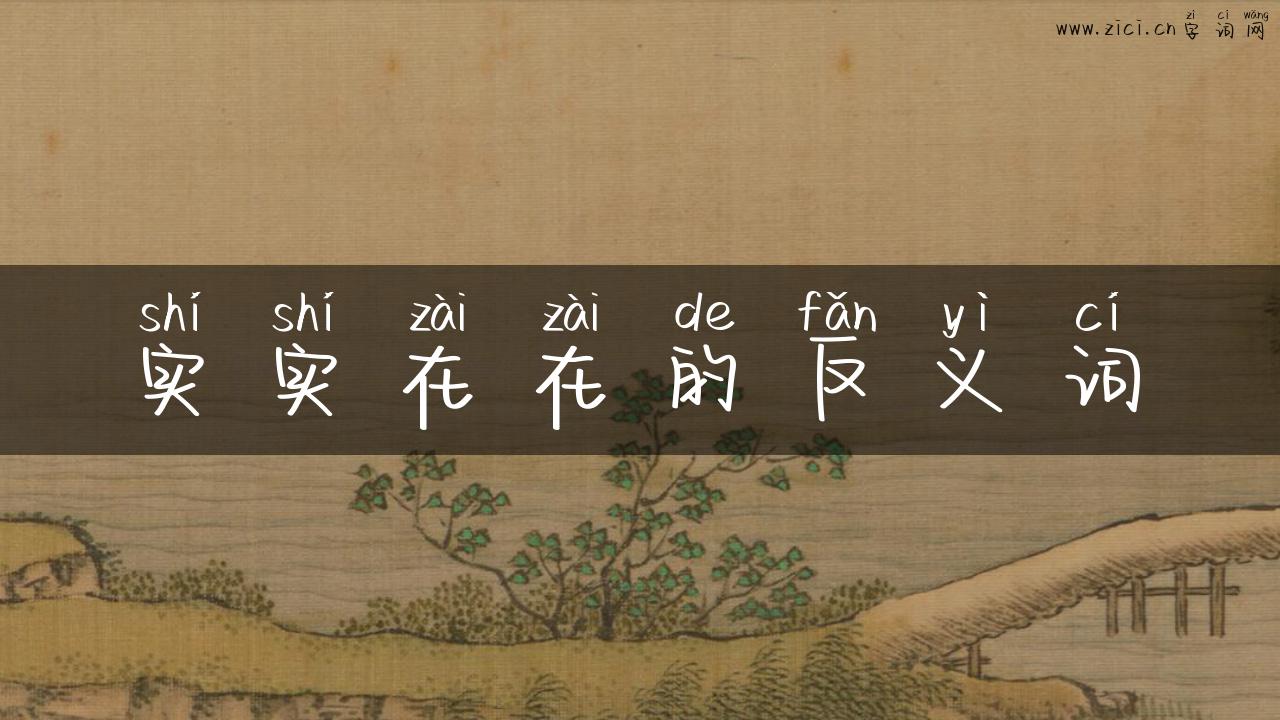 zì cí wǎng
www.zici.cn 字词网
shí shí zài zài de fǎn yì cí
实实在在的反义词